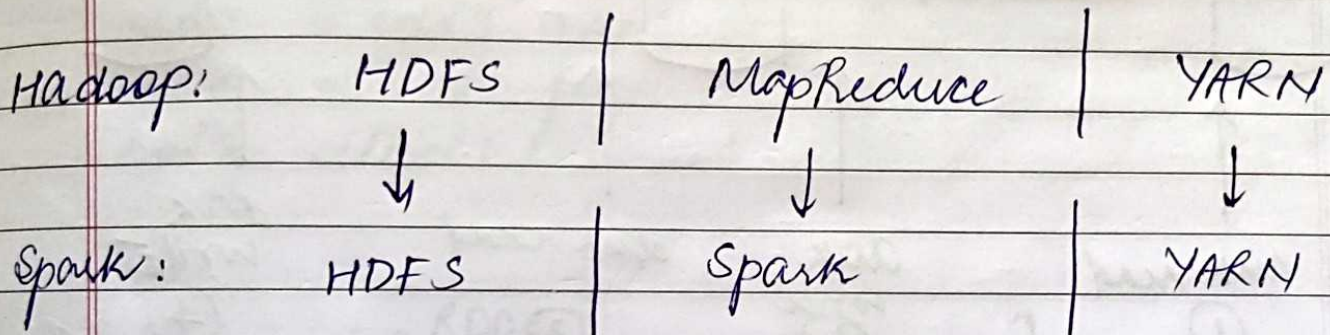 Hadoop: HDFS | MapReduce | YARN
↓ ↓ ↓
Spark: HDFS | Spark | YARN